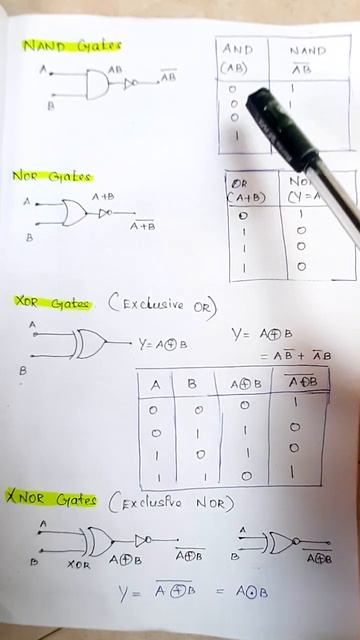 NAND Gates
A
AB
A̅B̅
B
AND NAND
(AB) A̅B̅
0 1
0 1
0
1
NOR Gates
A
A+B
B
A̅+̅B̅
OR NO
(A+B) (Y=A
0 1
1 0
1 0
1 0
XOR Gates. (Exclusive OR)
A
B
Y=A⊕B
Y= A⊕B
= AB̅ + A̅B
A B A⊕B A̅⊕̅B̅
0 0 0 1
0 1 1 0
1 0 1 0
1 1 0 1
XNOR Gates (Exclusive NOR)
A
B
XOR A⊕B A̅⊕̅B̅
A
B
A̅⊕̅B̅
Y= A̅⊕̅B̅ = A⊙B